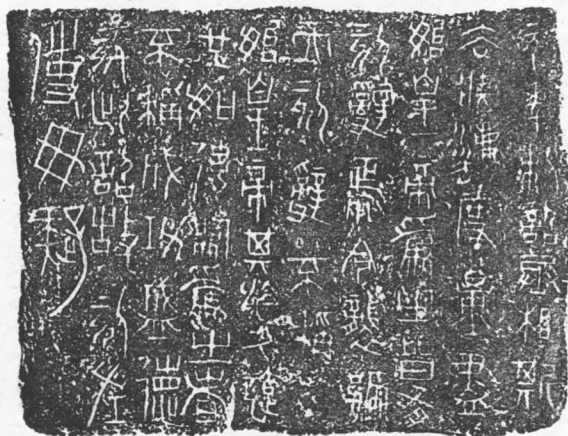 元年制詔丞相斯
去疾法度量盡
始皇帝爲之皆有
刻辭焉今襲號
而刻辭不稱
始皇帝其於久遠
也如後嗣爲之者
不稱成功盛德
刻此詔故刻左
使毋疑